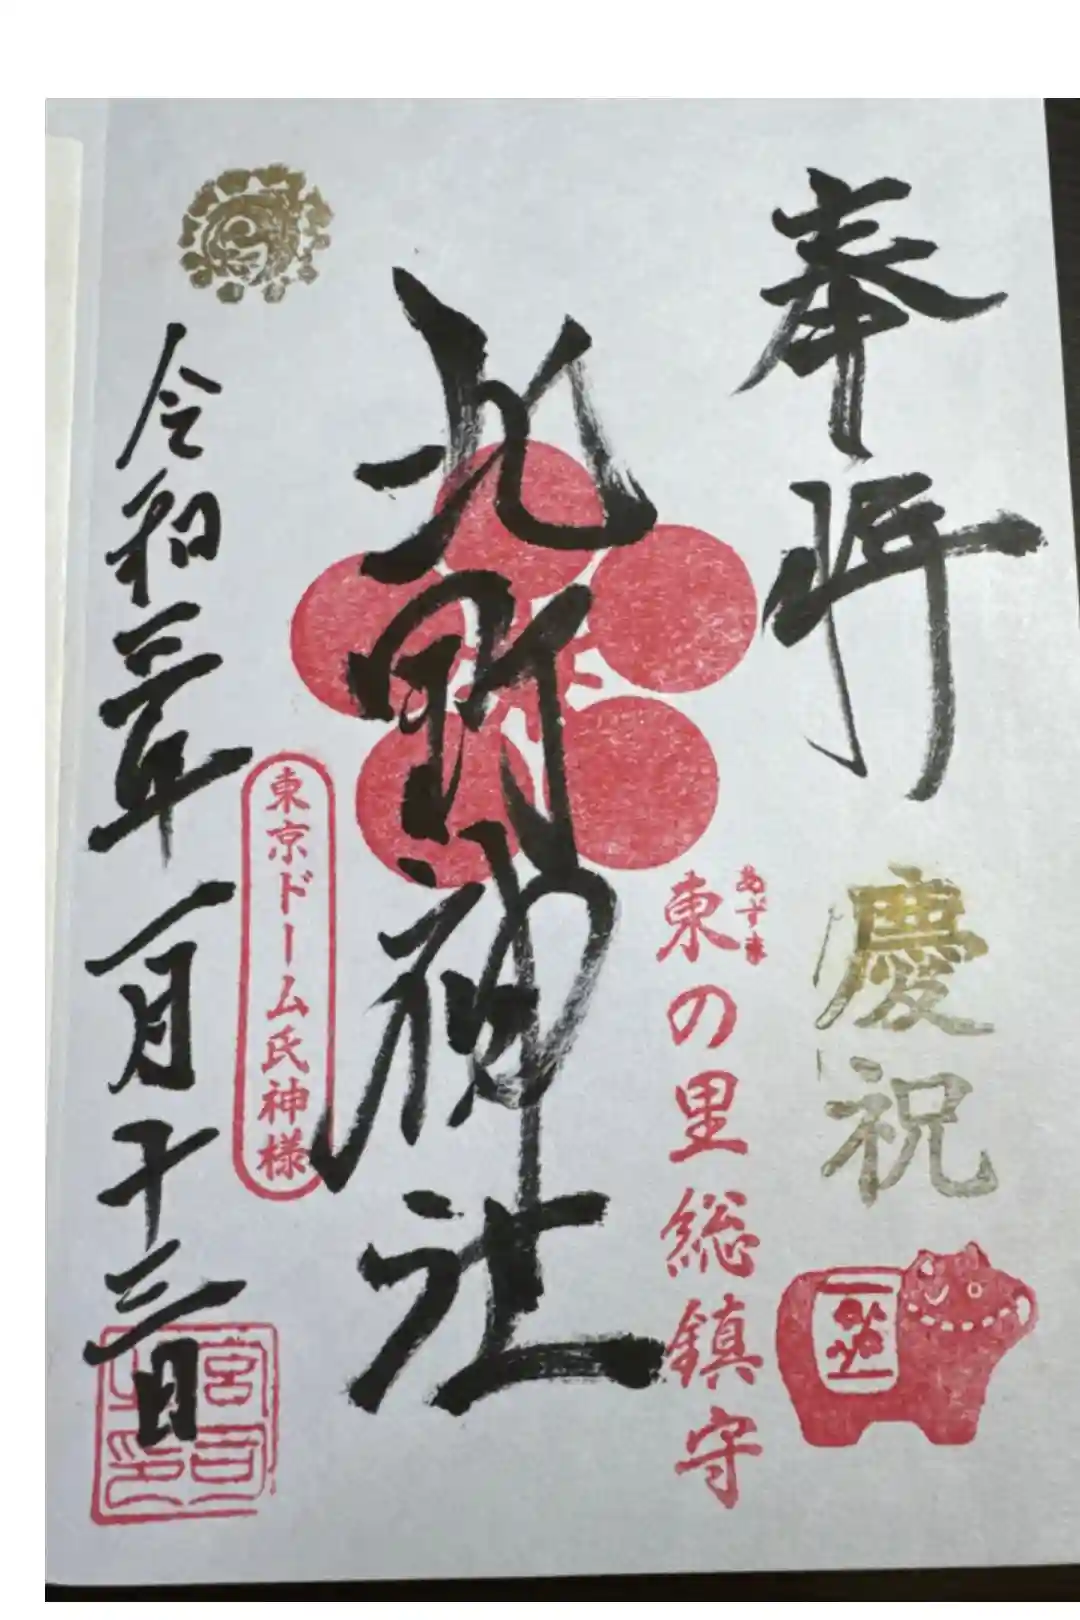 奉拝
慶祝
あずま
東の里総鎮守
北野神社
東京ドーム氏神様
令和三年一月十三日